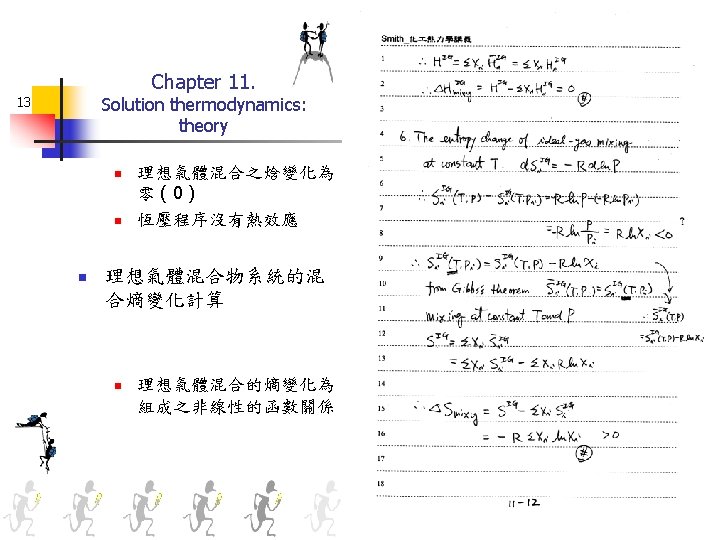 Chapter 11.
13
Solution thermodynamics:
theory
理想氣體混合之焓變化為
零 ( 0 )
恆壓程序沒有熱效應
理想氣體混合物系統的混
合熵變化計算
理想氣體混合的熵變化為
組成之非線性的函數關係
Smith_化工熱力學講義
1 ∴ H^IG = Σx_i H̄_i^IG = Σx_i H_i^IG
2 ∴ ΔH_mixing^IG = H^IG − Σx_i H_i^IG = 0
(#)
3
4 6. The entropy change of ideal-gas mixing
5 at constant T. dS_i^IG = − R dln P
6 ∴ S_i^IG(T,P) − S_i^IG(T,P_i) = − R ln P − (− R ln P_i)
7
8 = − R ln P/P_i = R ln x_i < 0 ?
9 ∴ S_i^IG(T,P_i) = S_i^IG(T,P) − R ln x_i
10 from Gibbs's theorem S̄_i^IG(T,P) = S_i^IG(T,P_i)
11 mixing at constant T and P
∴ S̄_i^IG(T,P)
= S_i^IG(T,P) − R ln x_i
12 S^IG = Σx_i S̄_i^IG
13 = Σx_i S_i^IG − Σx_i R ln x_i
14
15 ∴ ΔS_mixg = S^IG − Σx_i S_i^IG
16 = − R Σx_i ln x_i > 0
(#)
17
18
11-12